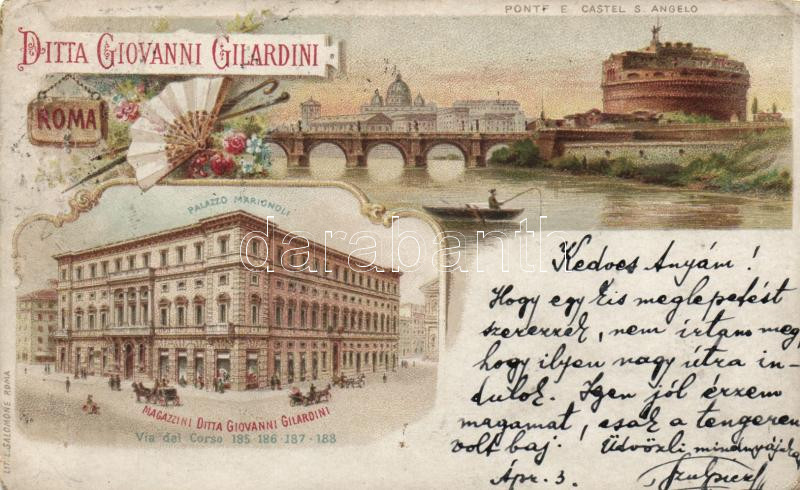 PONTE E CASTEL S. ANGELO
DITTA GIOVANNI GILARDINI
ROMA
PALAZZO MARIGNOLI
MAGAZZINI DITTA GIOVANNI GILARDINI
Via del Corso 185·186·187·188
LIT. E. SALOMONE ROMA
darabanth.com
Kedves Anyám!
Hogy egy kis meglepetést
szerezzek, nem írtam meg,
hogy ilyen nagy útra in-
dulok. Igen jól érzem
magamat, csak a tengeren
volt baj! Üdvözli mindnyájokat
Ápr. 3.